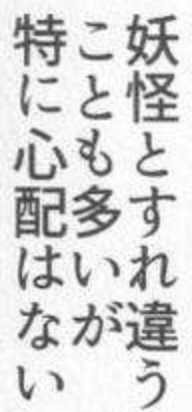 妖怪とすれ違う
ことも多いが
特に心配はない